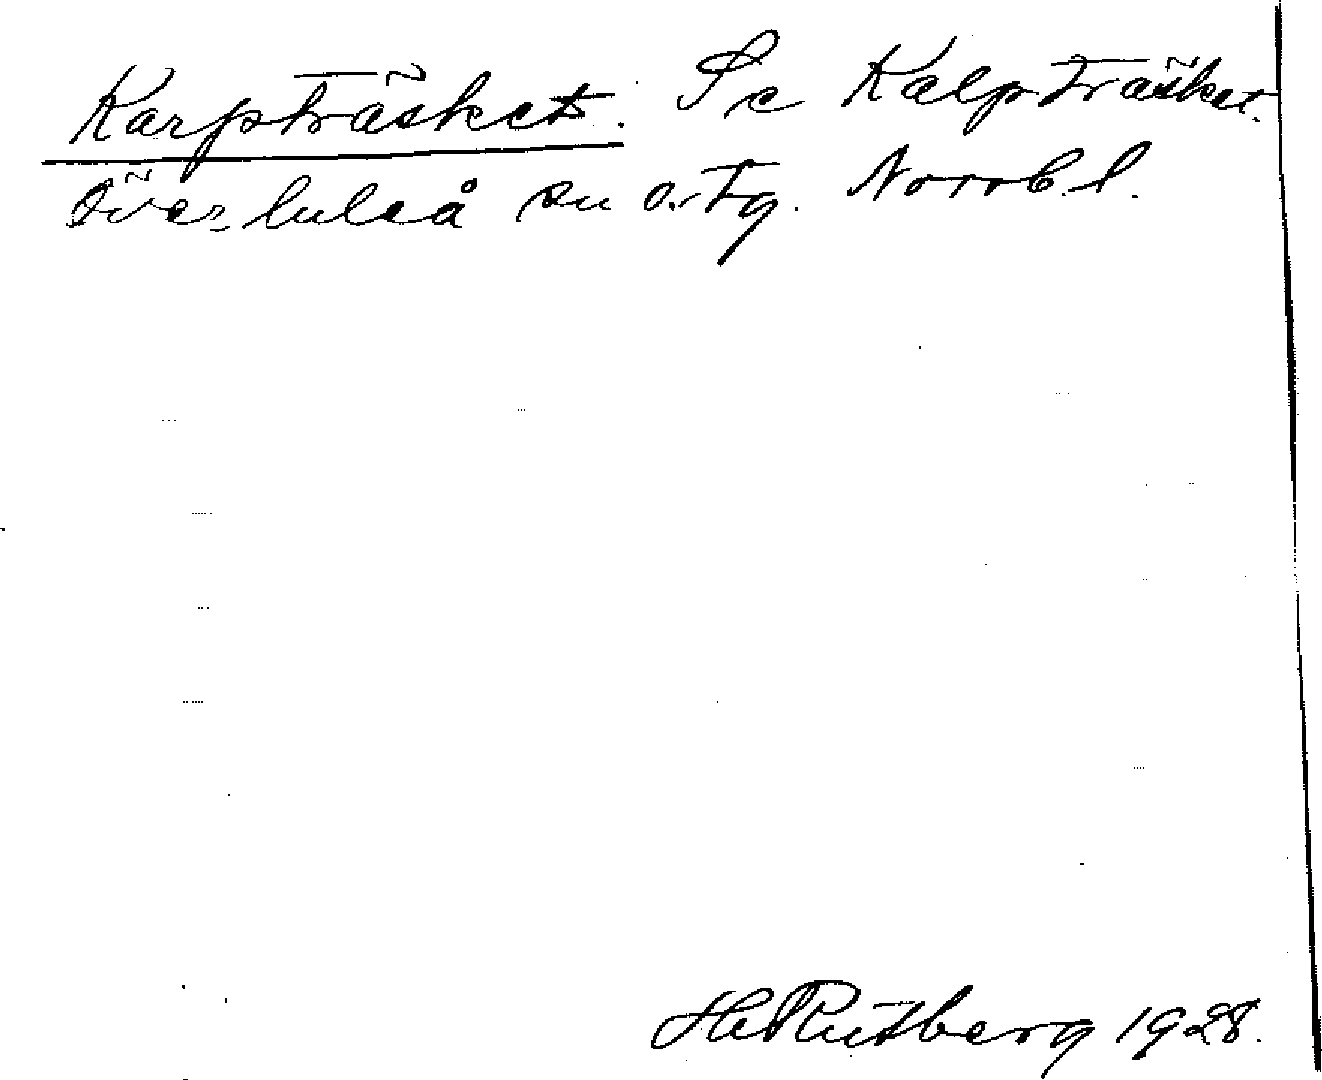 Karpträsket. Se Kalpträsket.
Överluleå sn o. tg. Norrb. l.
H Rutberg 1928.